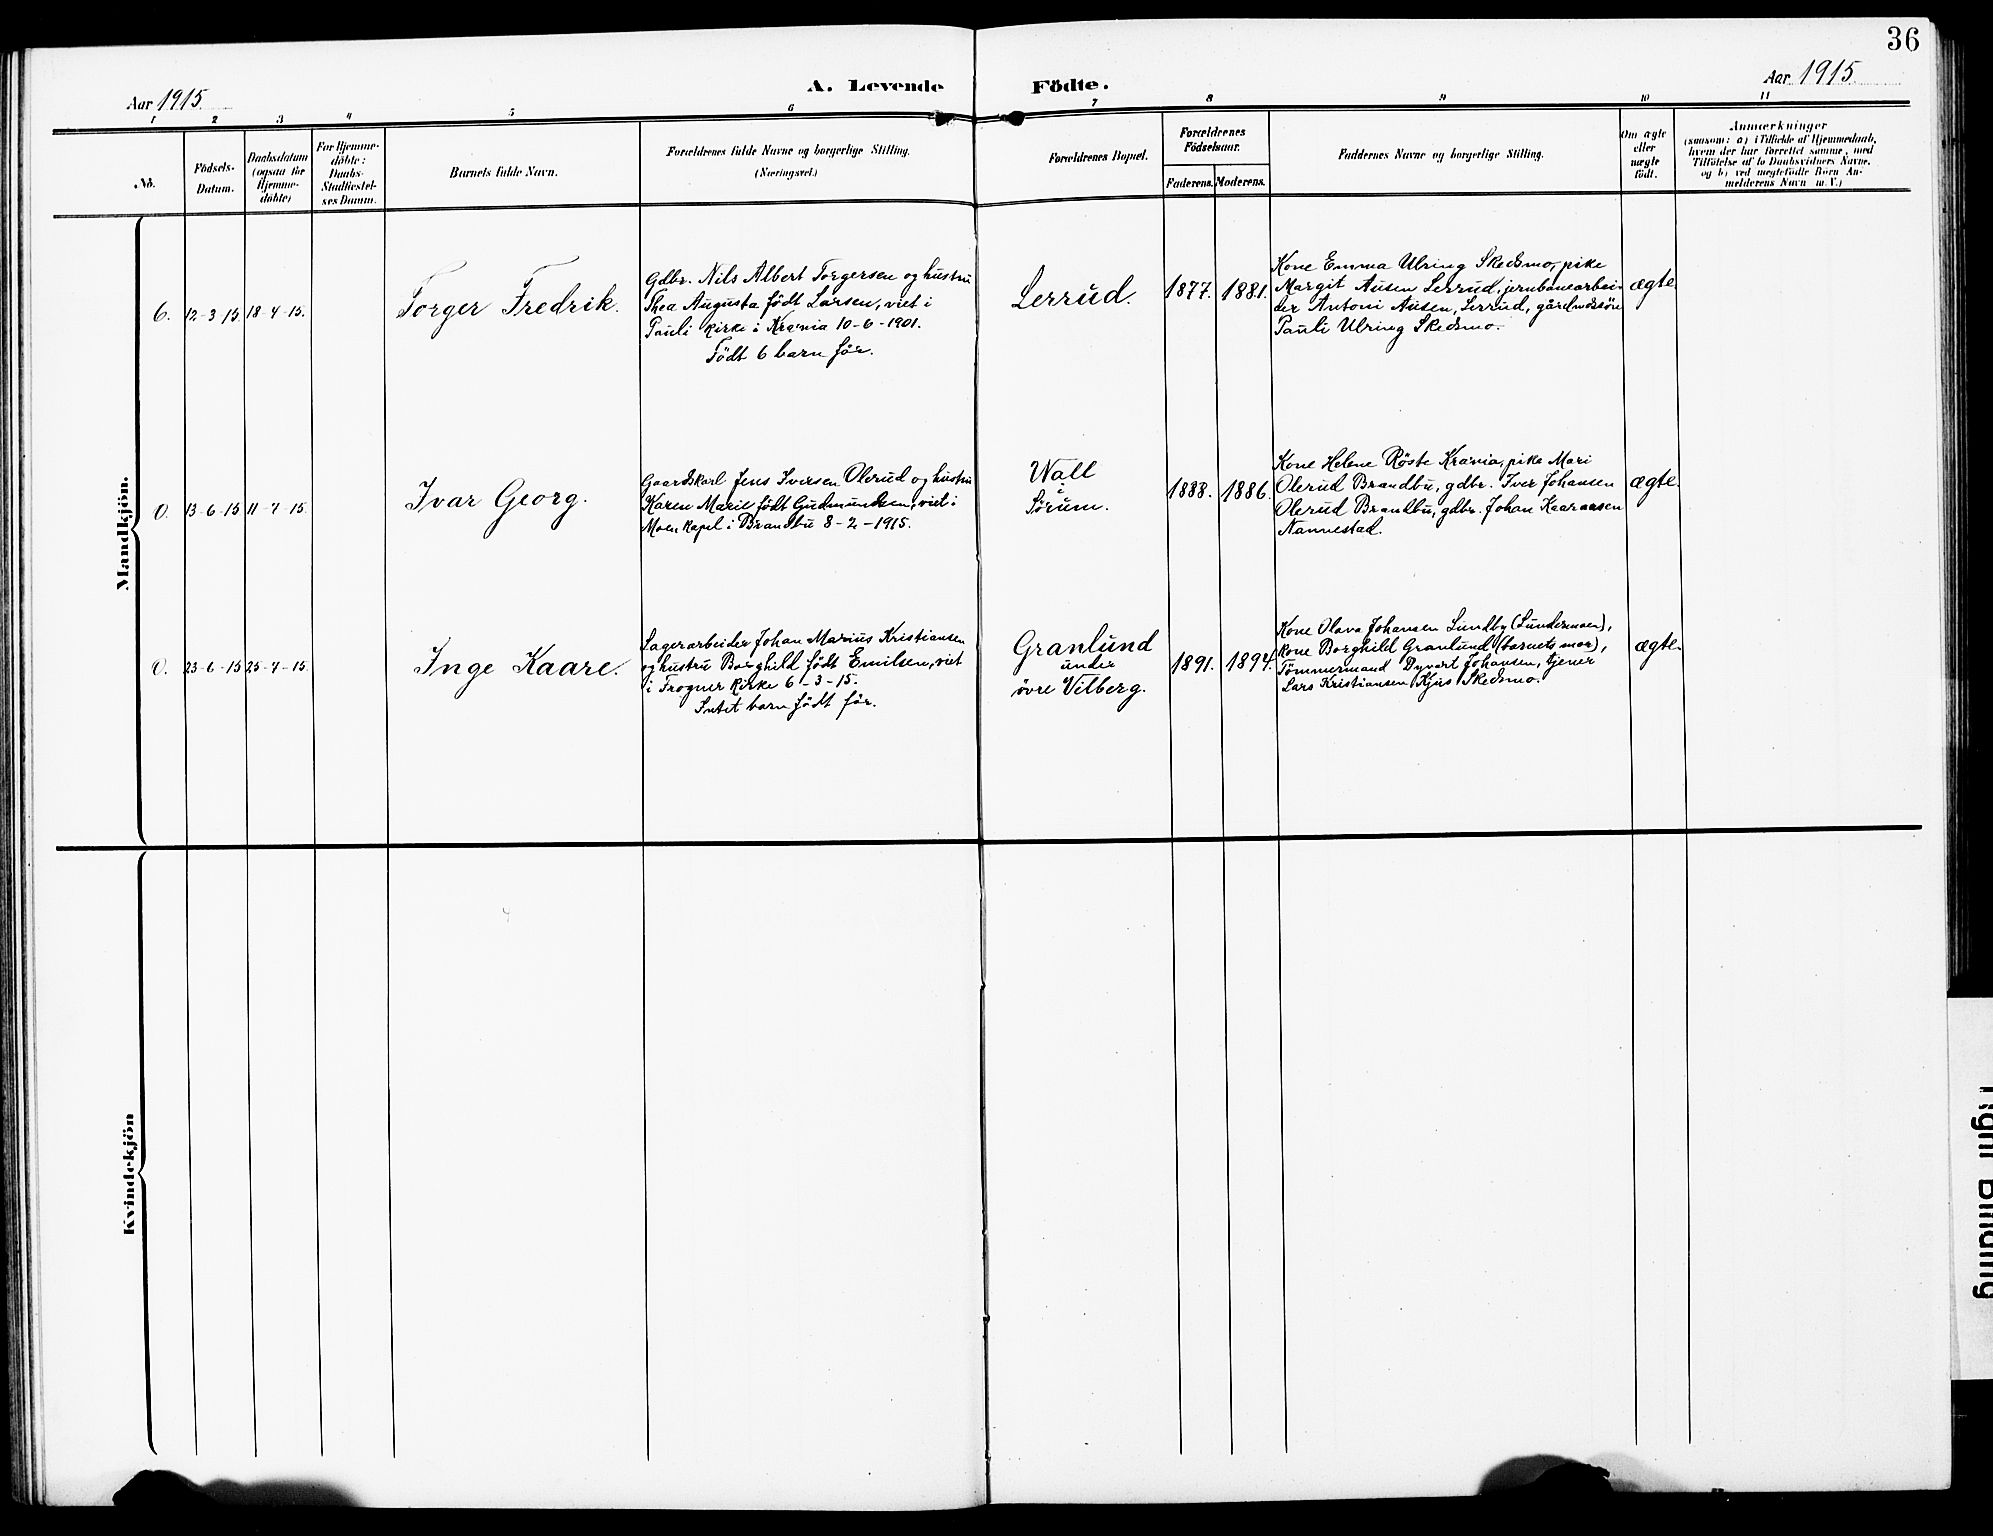 36
Aar 1915.
A. Levende Födte.
Aar 1915
1 2 3 4 5 6 7 8 9 10 11
No.
Födsels-
Datum.
Daabsdatum
(ogsaa for
Hjemme-
döbte)
For Hjemme-
döbte:
Daabs-
Stadfæstel-
ses Datum.
Barnets fulde Navn.
Forældrenes fulde Navne og borgerlige Stilling.
(Næringsvei.)
Forældrenes Bopæl.
Forældrenes
Födselsaar.
Faderens. Moderens.
Faddernes Navne og borgerlige Stilling.
Om ægte
eller
uægte
födt.
Anmærkninger
(saasom: a) i Tilfælde af Hjemmedaab,
hvem der har forrettet samme, med
Tilföielse af to Daabsvidners Navne,
og b) ved uægtefödte Börn An-
melderens Navn m. V.)
Mandkjön.
6.
12-3-15.
18-4-15.
Torger Fredrik.
Gdbr. Nils Albert Torgersen og hustru
Thea Augusta født Larsen, viet i
Pauli kirke i Kr.ania 10-6-1901.
Födt 6 barn før.
Lerrud.
1877.
1881.
Kone Emma Ulring Skedsmo, pike
Margit Ausen Lerrud, jernbanearbei-
der Antoni Ausen, Lerrud, gårdmdssön
Pauli Ulring Skedsmo.
ægte
0.
13-6-15
11-7-15.
Ivar Georg.
Gaardskarl Jens Iversen Olerud og hustru
Karen Marie født Gudmundsen, viet i
Moen kapel i Brandbu 8-2-1915.
Wall
i
Sørum.
1888.
1886.
Kone Helene Röste Kr.ania, pike Mari
Olerud Brandbu, gdbr. Iver Johansen
Olerud Brandbu, gdbr. Johan Kaaraasen
Nannestad.
ægte.
0.
23-6-15
25-7-15.
Inge Kaare.
Lagerarbeider Johan Marius Kristiansen
og hustru Borghild født Emilsen, viet
i Frogner kirke 6-3-15.
Intet barn født før.
Granlund
under
övre Vilberg.
1891.
1894.
Kone Olava Johansen Lundby (Lundermoen),
kone Borghild Granlund (barnets mor),
Tömmermand Dyvart Johansen, tjener
Lars Kristiansen Kjus Skedsmo.
ægte.
Kvindekjön
Tight Binding